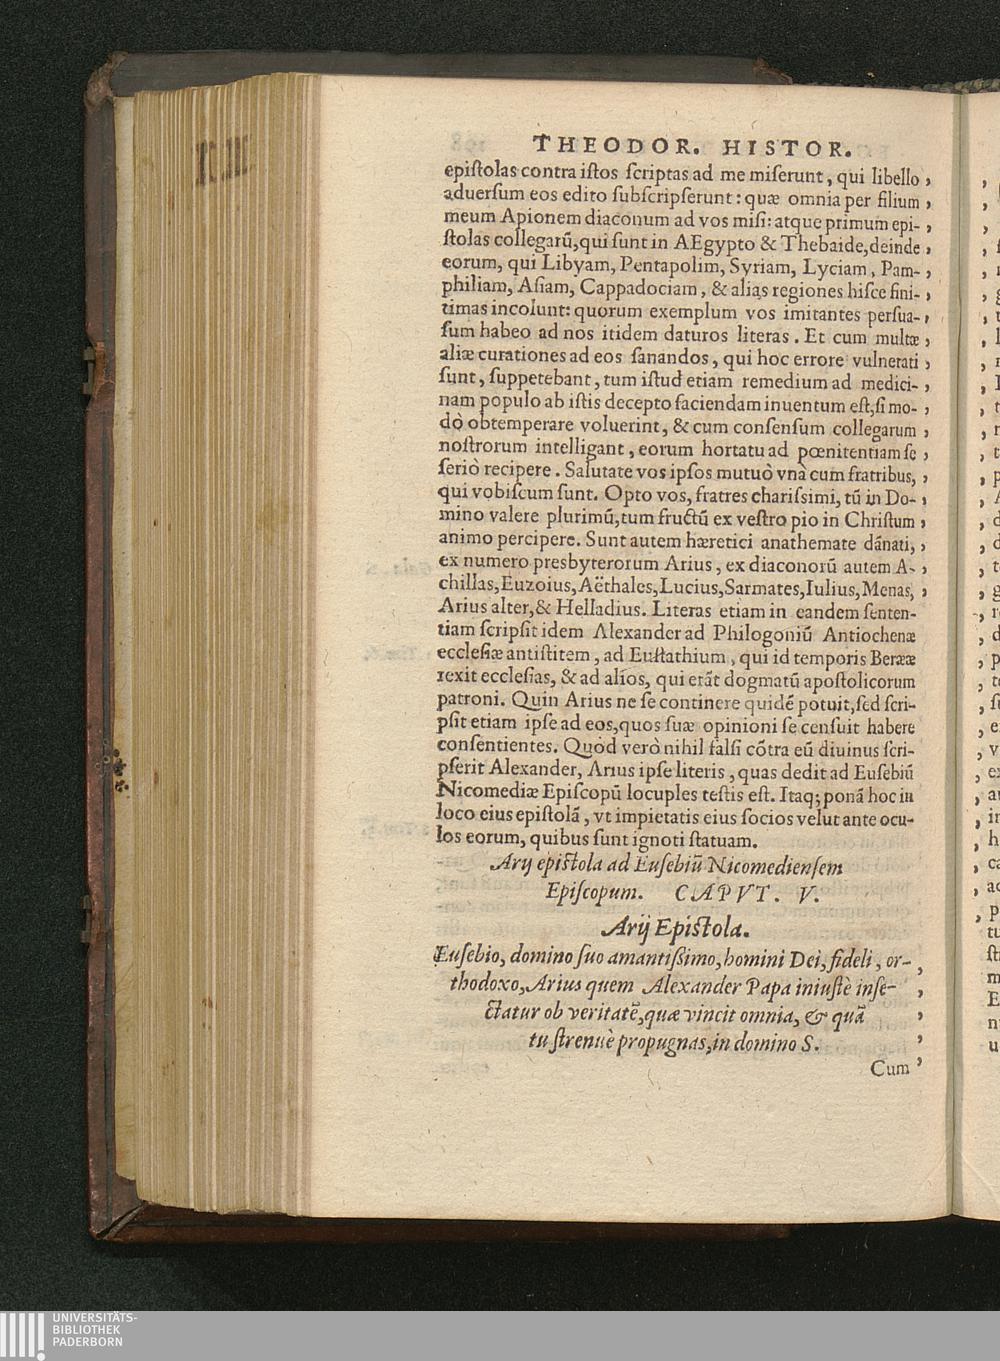 THEODOR. HISTOR.
epiſtolas contra iſtos ſcriptas ad me miſerunt, qui libello ,
aduerſum eos edito ſubſcripſerunt: quæ omnia per filium ,
meum Apionem diaconum ad vos miſi: atque primum epi- ,
ſtolas collegarũ, qui ſunt in AEgypto & Thebaide, deinde ,
eorum, qui Libyam, Pentapolim, Syriam, Lyciam, Pam- ,
philiam, Aſiam, Cappadociam, & alias regiones hiſce fini- ,
timas incolunt: quorum exemplum vos imitantes perſua- ,
ſum habeo ad nos itidem daturos literas. Et cum multæ ,
aliæ curationes ad eos ſanandos, qui hoc errore vulnerati ,
ſunt, ſuppetebant, tum iſtud etiam remedium ad medici- ,
nam populo ab iſtis decepto faciendam inuentum eſt, ſi mo- ,
dò obtemperare voluerint, & cum conſenſum collegarum ,
noſtrorum intelligant, eorum hortatu ad pœnitentiam ſe ,
ſeriò recipere. Salutate vos ipſos mutuò vnà cum fratribus, ,
qui vobiſcum ſunt. Opto vos, fratres chariſsimi, tũ in Do- ,
mino valere plurimũ, tum fructũ ex veſtro pio in Chriſtum ,
animo percipere. Sunt autem hæretici anathemate dãnati, ,
ex numero presbyterorum Arius, ex diaconorũ autem A- ,
chillas, Euzoius, Aëthales, Lucius, Sarmates, Iulius, Menas, ,
Arius alter, & Helladius. Literas etiam in eandem ſenten-
tiam ſcripſit idem Alexander ad Philogoniũ Antiochenæ
eccleſiæ antiſtitem, ad Euſtathium, qui id temporis Berææ
rexit eccleſias, & ad alios, qui erãt dogmatũ apoſtolicorum
patroni. Quin Arius ne ſe continere quidẽ potuit, ſed ſcri-
pſit etiam ipſe ad eos, quos ſuæ opinioni ſe cenſuit habere
conſentientes. Quòd verò nihil falſi cõtra eũ diuinus ſcri-
pſerit Alexander, Arius ipſe literis, quas dedit ad Euſebiũ
Nicomediæ Epiſcopũ locuples teſtis eſt. Itaq; ponã hoc in
loco eius epiſtolã, vt impietatis eius ſocios velut ante ocu-
los eorum, quibus ſunt ignoti ſtatuam.
Arij epiſtola ad Euſebiũ Nicomedienſem
Epiſcopum. CAPVT. V.
Arij Epiſtola.
Euſebio, domino ſuo amantiſsimo, homini Dei, fideli, or- ,
thodoxo, Arius quem Alexander Papa iniuſtè inſe- ,
ctatur ob veritatẽ, quæ vincit omnia, & quã ,
tu ſtrenuè propugnas, in domino S. ,
Cum ,
UNIVERSITÄTS-
BIBLIOTHEK
PADERBORN